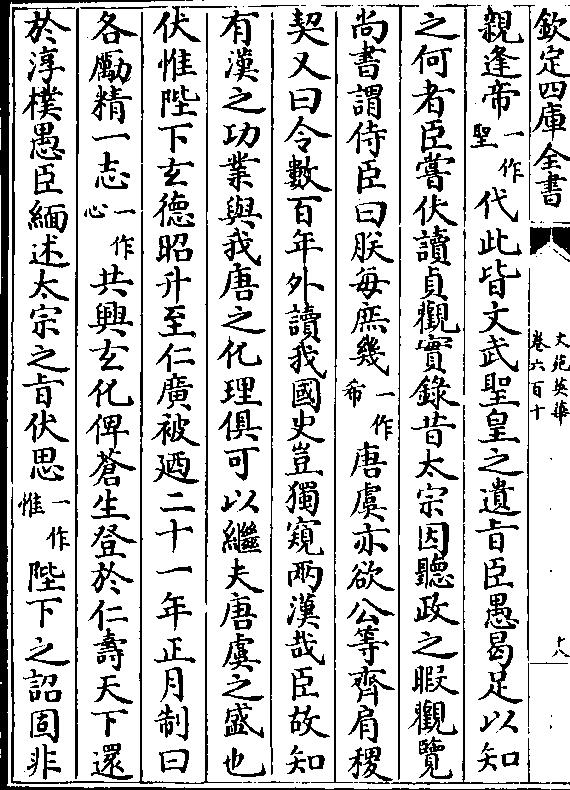 欽定四庫全書
文苑英華
卷六百十
十八
親逢帝一作聖代此皆文武聖皇之遺旨臣愚曷足以知
之何者臣嘗伏讀貞觀實錄昔太宗因聽政之暇觀覽
尚書謂侍臣曰朕每庶幾一作希唐虞亦欲公等齊肩稷
契又曰令數百年外讀我國史豈獨窺兩漢哉臣故知
有漢之功業與我唐之化理俱可以繼夫唐虞之盛也
伏惟陛下玄德昭升至仁廣被廼二十一年正月制曰
各勵精一志一作心共興玄化俾蒼生登於仁壽天下還
於淳樸愚臣緬述太宗之旨伏思一作惟陛下之詔固非